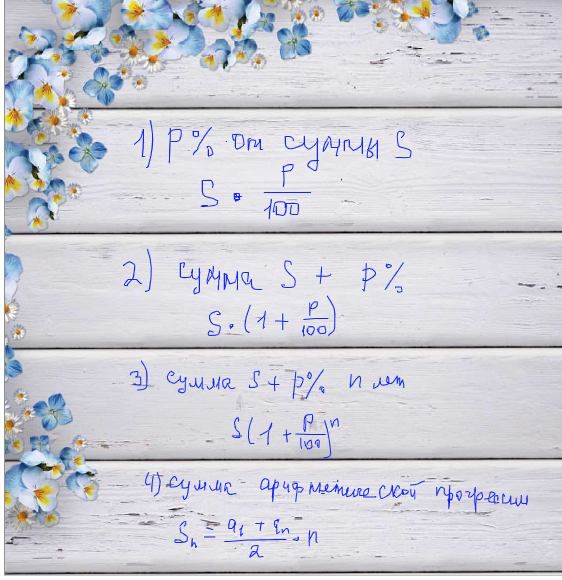 1) P% от суммы S
S · P/100
2) сумма S + p%
S · (1 + P/100)
3) сумма S + p% n лет
S (1 + P/100)^n
4) сумма арифметической прогрессии
Sₙ = a₁ + aₙ / 2 · n